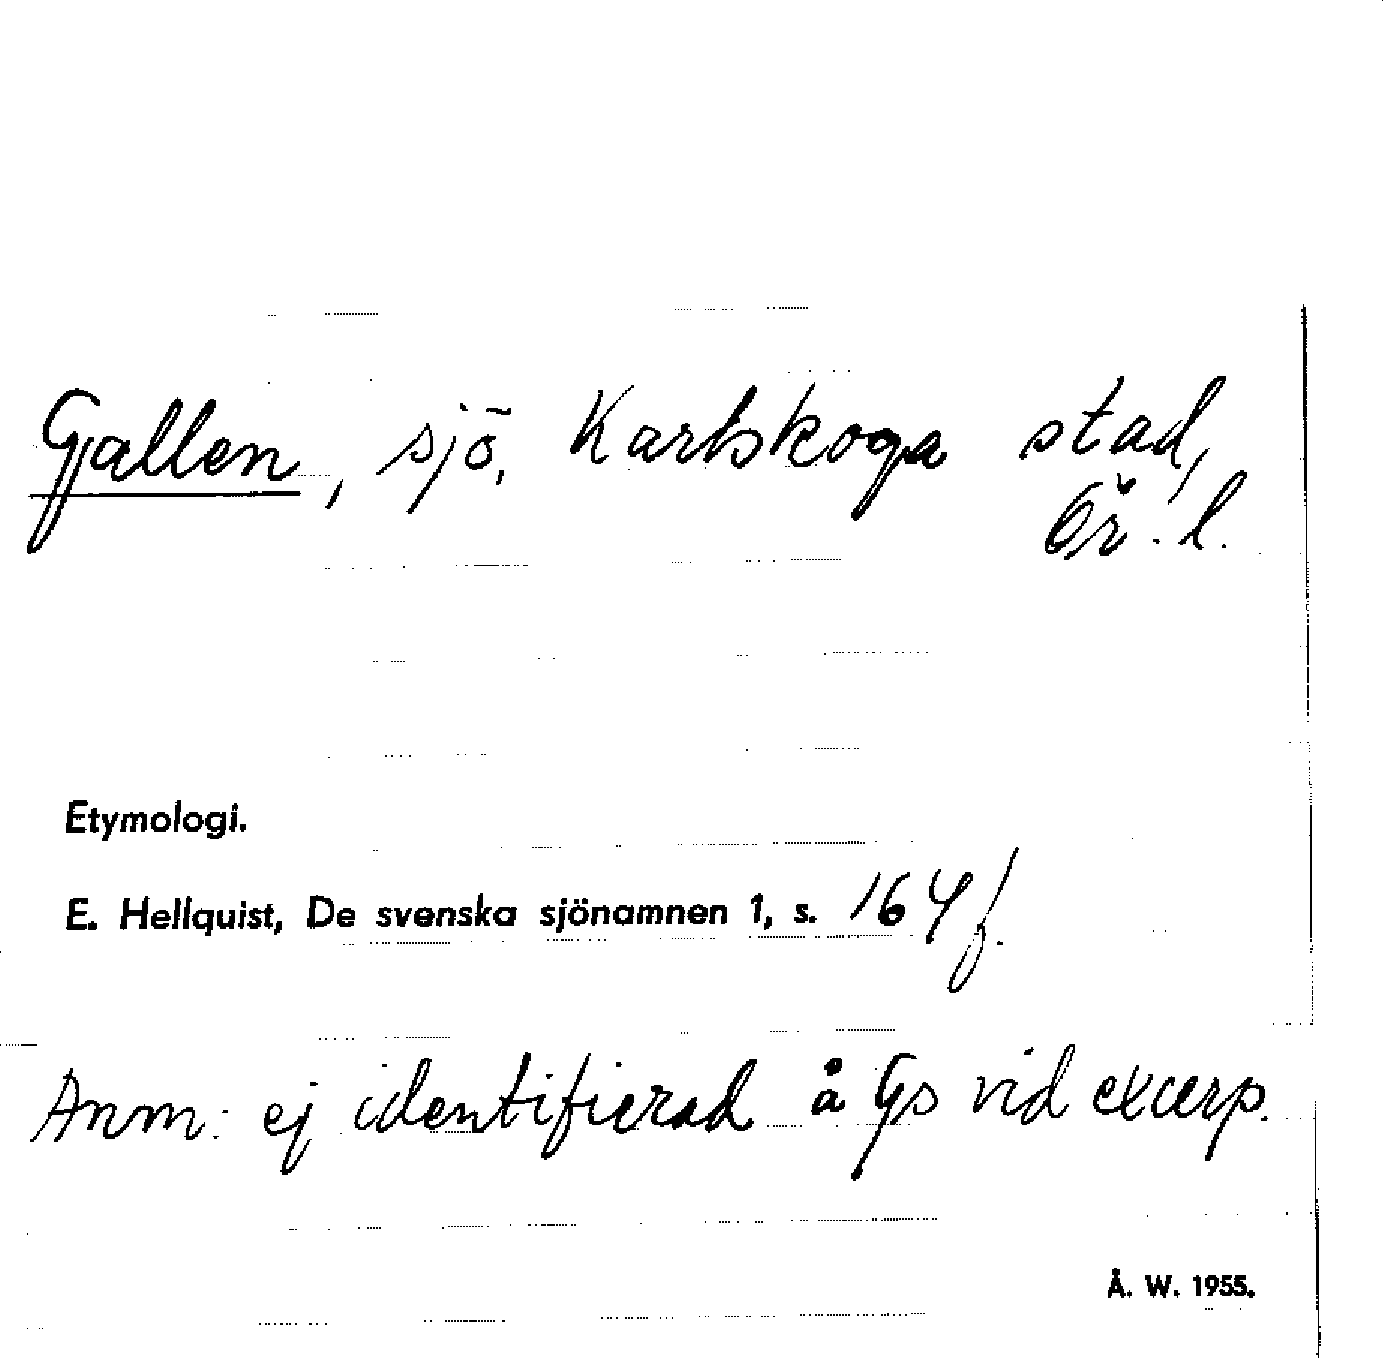 Gjallen, sjö, Karlskoga stad,
Ör. l.
Etymologi.
E. Hellquist, De svenska sjönamnen 1, s. 164 f.
Anm: ej identifierad å Gs vid excerp.
Å. W. 1955.